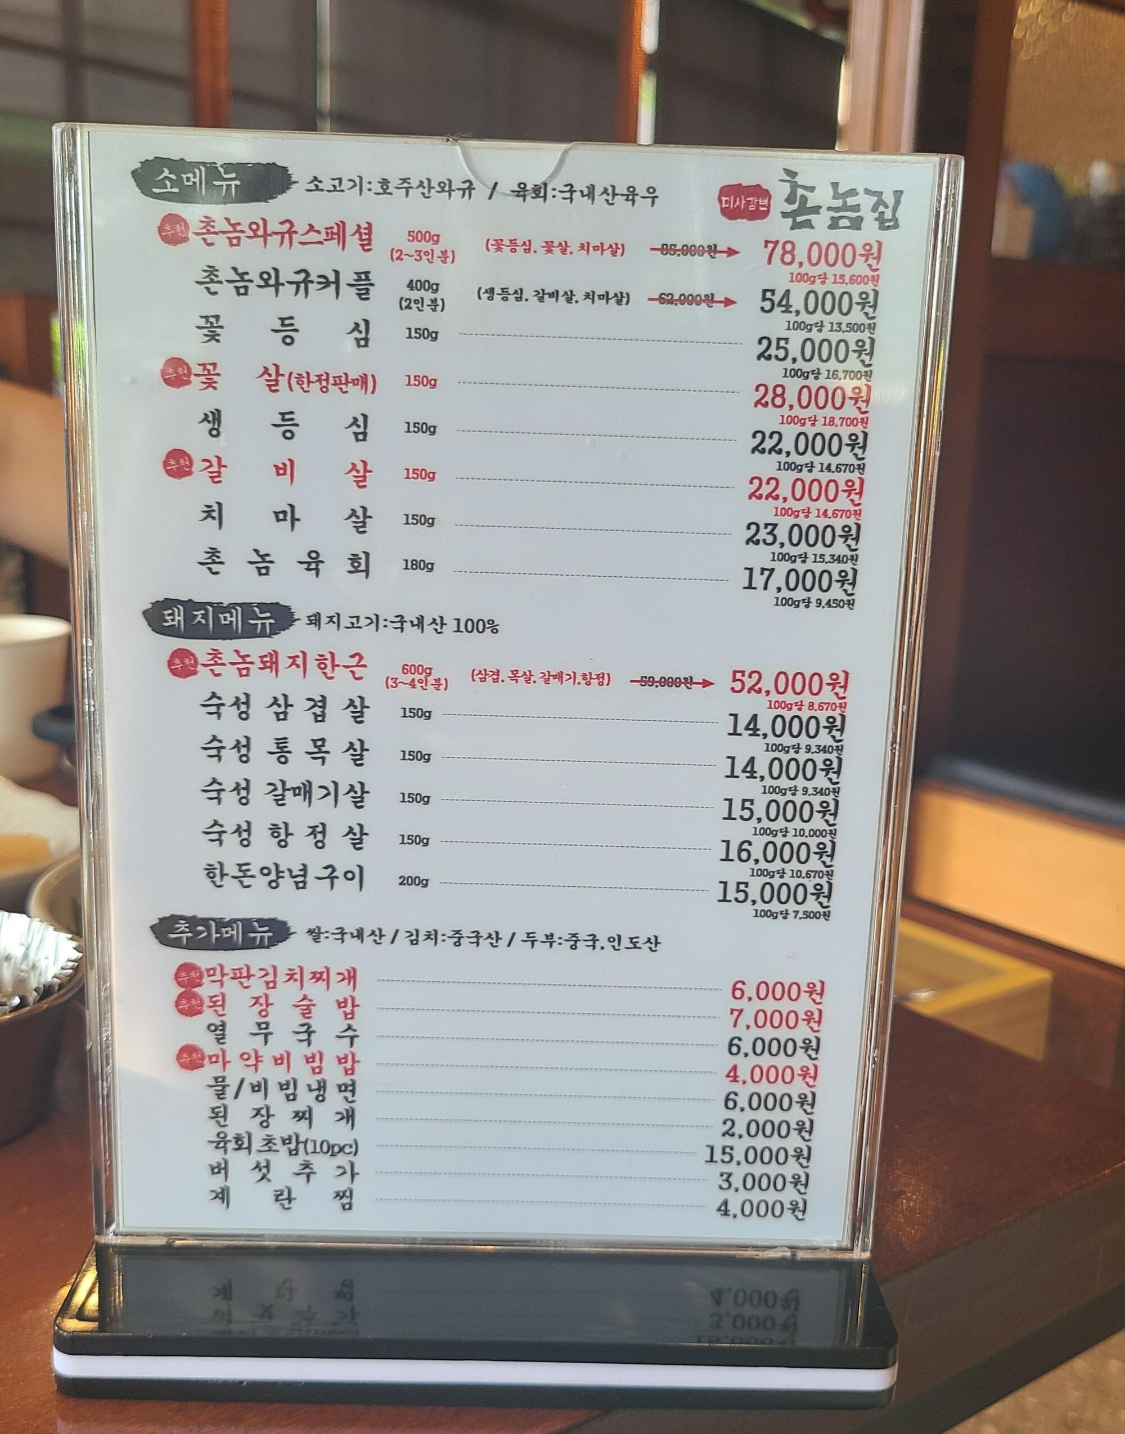 소메뉴 소고기:호주산와규 / 육회:국내산육우 미사강변 촌놈집
추천 촌놈와규스페셜 500g (2~3인분) (꽃등심, 꽃살, 치마살) 85,000원 78,000원
100g당 15,600원
촌놈와규커플 400g (2인분) (생등심, 갈비살, 치마살) 62,000원 54,000원
100g당 13,500원
꽃등심 150g 25,000원
100g당 16,700원
추천 꽃살(한정판매) 150g 28,000원
100g당 18,700원
생등심 150g 22,000원
100g당 14,670원
추천 갈비살 150g 22,000원
100g당 14,670원
치마살 150g 23,000원
100g당 15,340원
촌놈육회 180g 17,000원
100g당 9,450원
돼지메뉴 돼지고기:국내산 100%
추천 촌놈돼지한근 600g (3~4인분) (삼겹, 목살, 갈매기,항정) 59,000원 52,000원
100g당 8,670원
숙성삼겹살 150g 14,000원
100g당 9,340원
숙성통목살 150g 14,000원
100g당 9,340원
숙성갈매기살 150g 15,000원
100g당 10,000원
숙성항정살 150g 16,000원
100g당 10,670원
한돈양념구이 200g 15,000원
100g당 7,500원
추가메뉴 쌀:국내산 / 김치:중국산 / 두부:중국,인도산
추천 막판김치찌개 6,000원
추천 된장술밥 7,000원
열무국수 6,000원
추천 마약비빔밥 4,000원
물/비빔냉면 6,000원
된장찌개 2,000원
육회초밥(10pc) 15,000원
버섯추가 3,000원
계란찜 4,000원